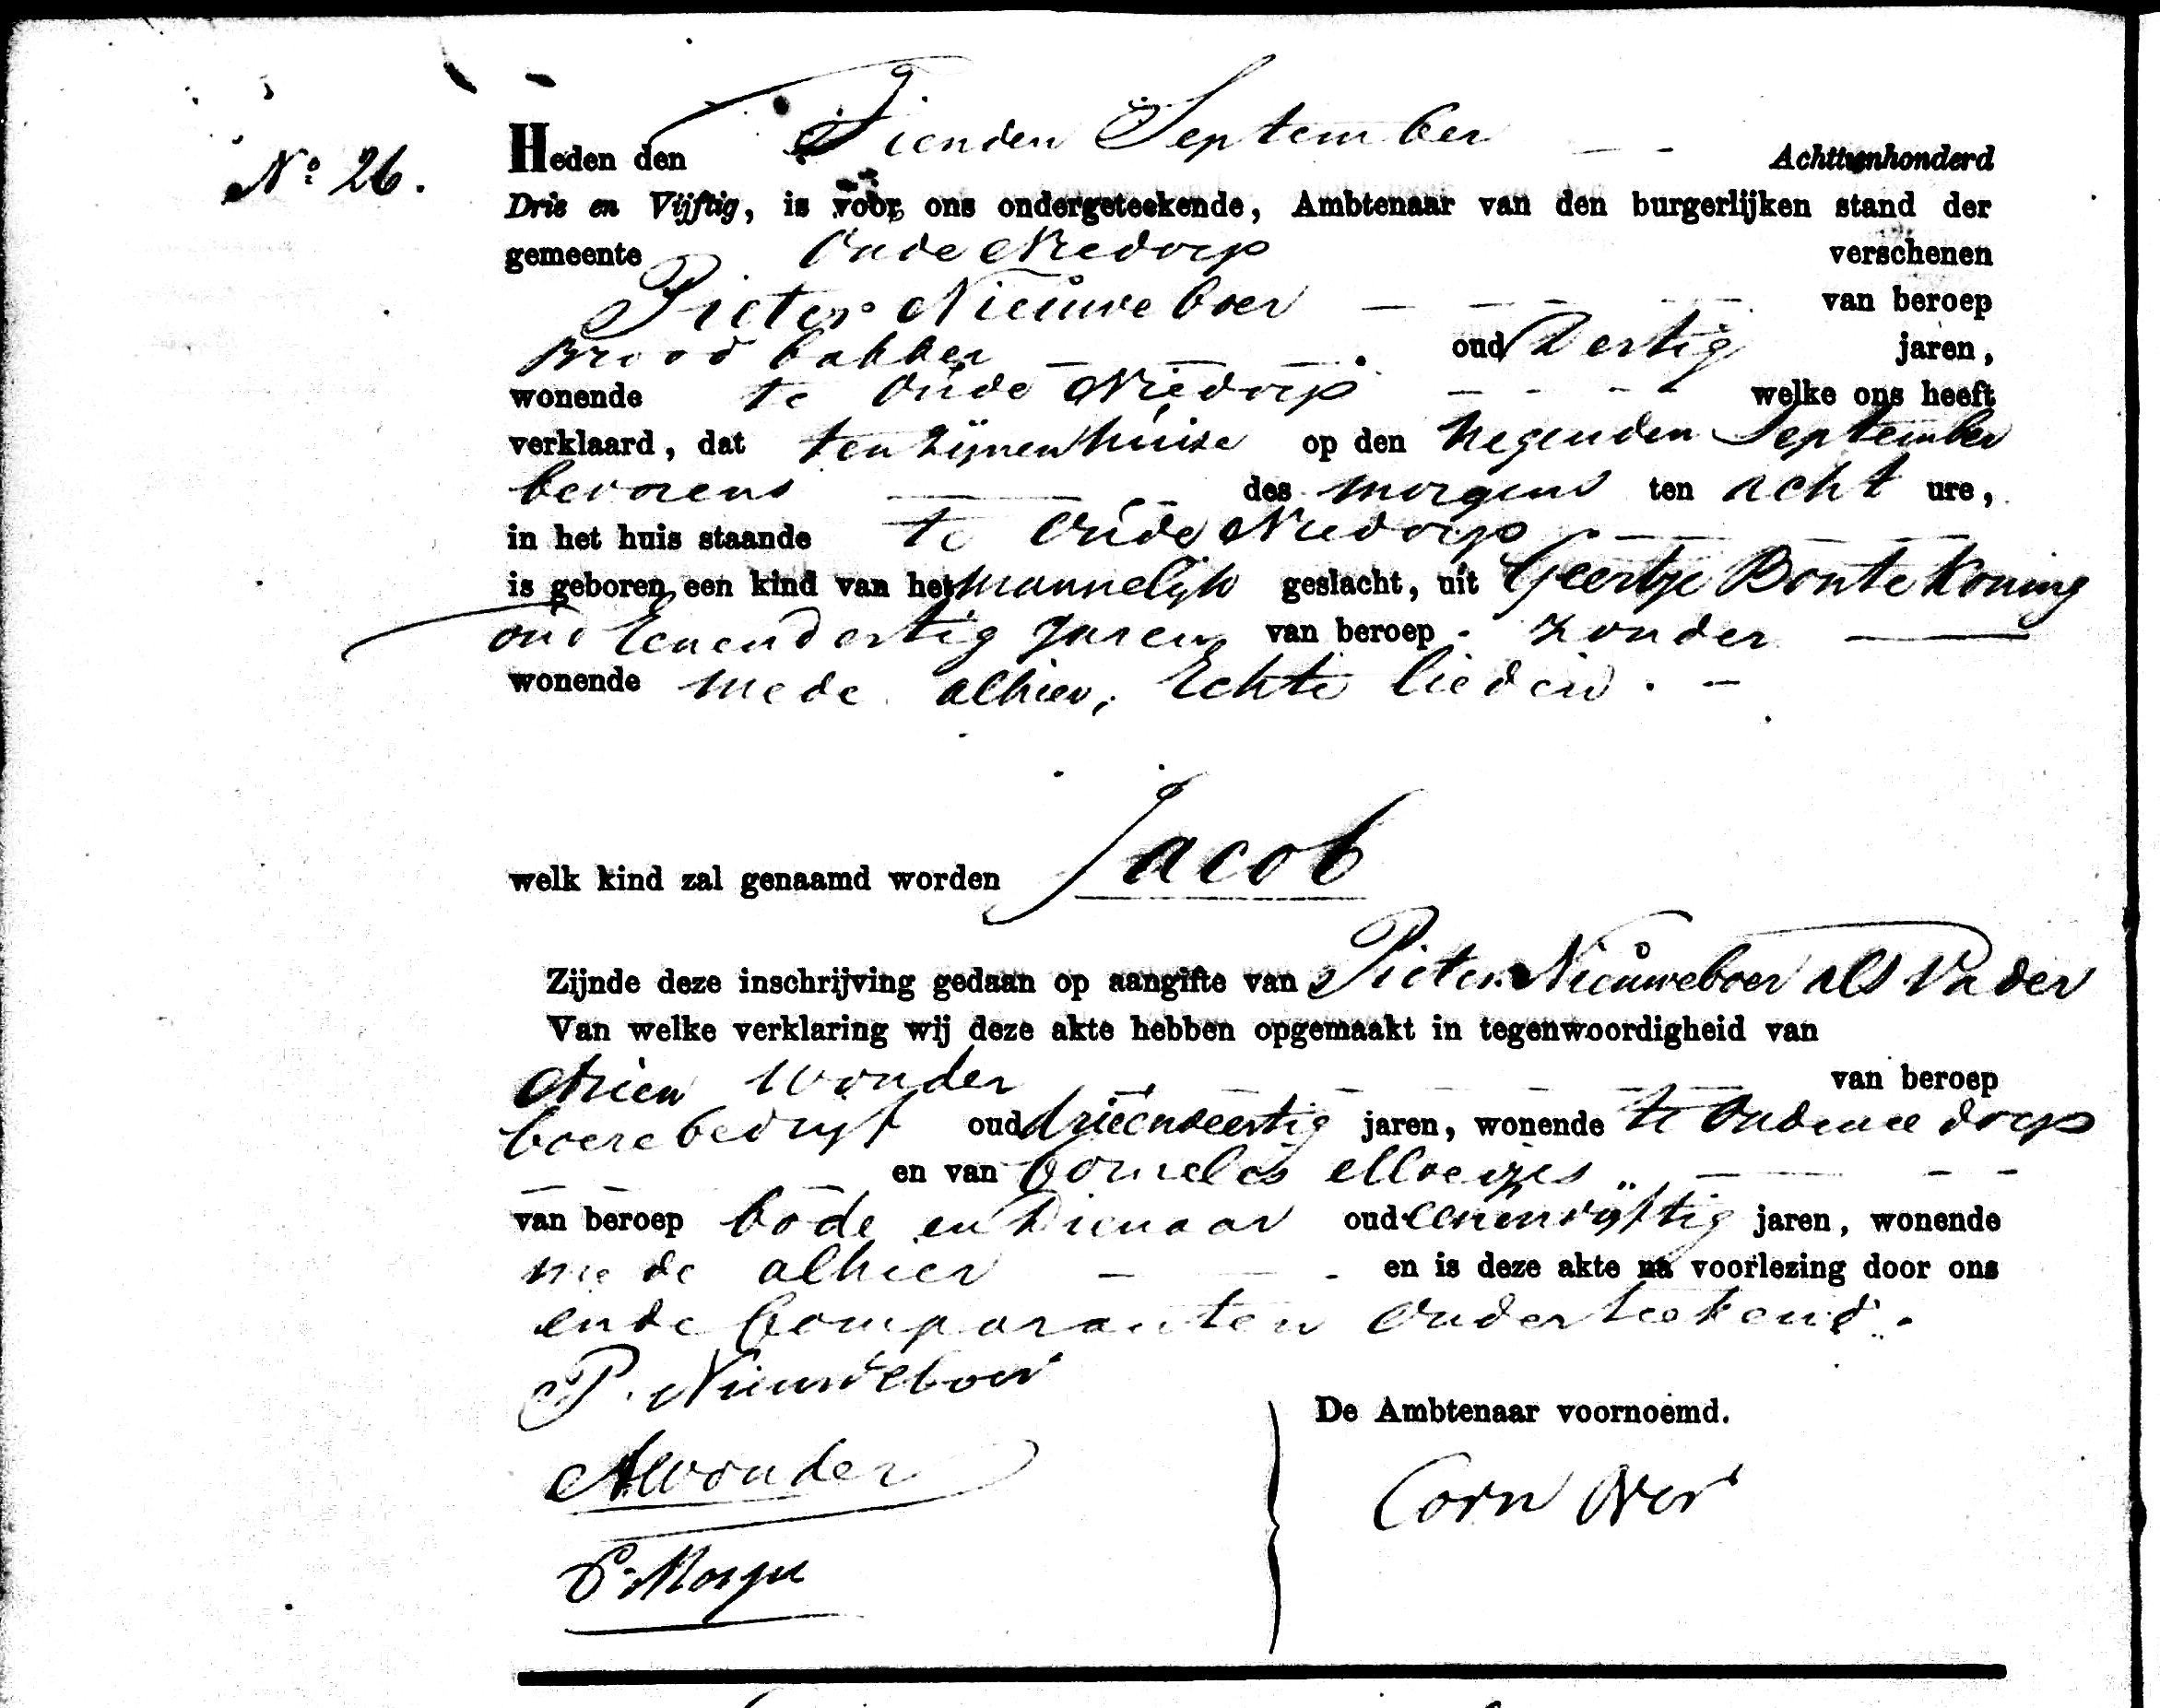 No 26.
Heden den Tienden September Achttienhonderd
Drie en Vijftig, is voor ons ondergeteekende, Ambtenaar van den burgerlijken stand der
gemeente Oude Niedorp verschenen
Pieter Nieuweboer van beroep
Broodbakker oud Dertig jaren,
wonende te Oude Niedorp welke ons heeft
verklaard, dat ten zijnen huize op den Negenden September
bevorens des morgens ten acht ure,
in het huis staande te Oude Niedorp
is geboren een kind van het mannelijk geslacht, uit Geertje Bontekoning
oud Eenendertig Jaren van beroep zonder
wonende mede alhier, Echte lieden.
welk kind zal genaamd worden Jacob
Zijnde deze inschrijving gedaan op aangifte van Pieter Nieuweboer als Vader
Van welke verklaring wij deze akte hebben opgemaakt in tegenwoordigheid van
Arien Wonder van beroep
boerebedrijf oud drieenveertig jaren, wonende te Oudeniedorp
en van Cornelis
van beroep bode en Dienaar oud eenenvijftig jaren, wonende
mede alhier en is deze akte na voorlezing door ons
en de Comparanten onderteekend.
P. Nieuweboer
De Ambtenaar voornoemd.
A Wonder
Corn